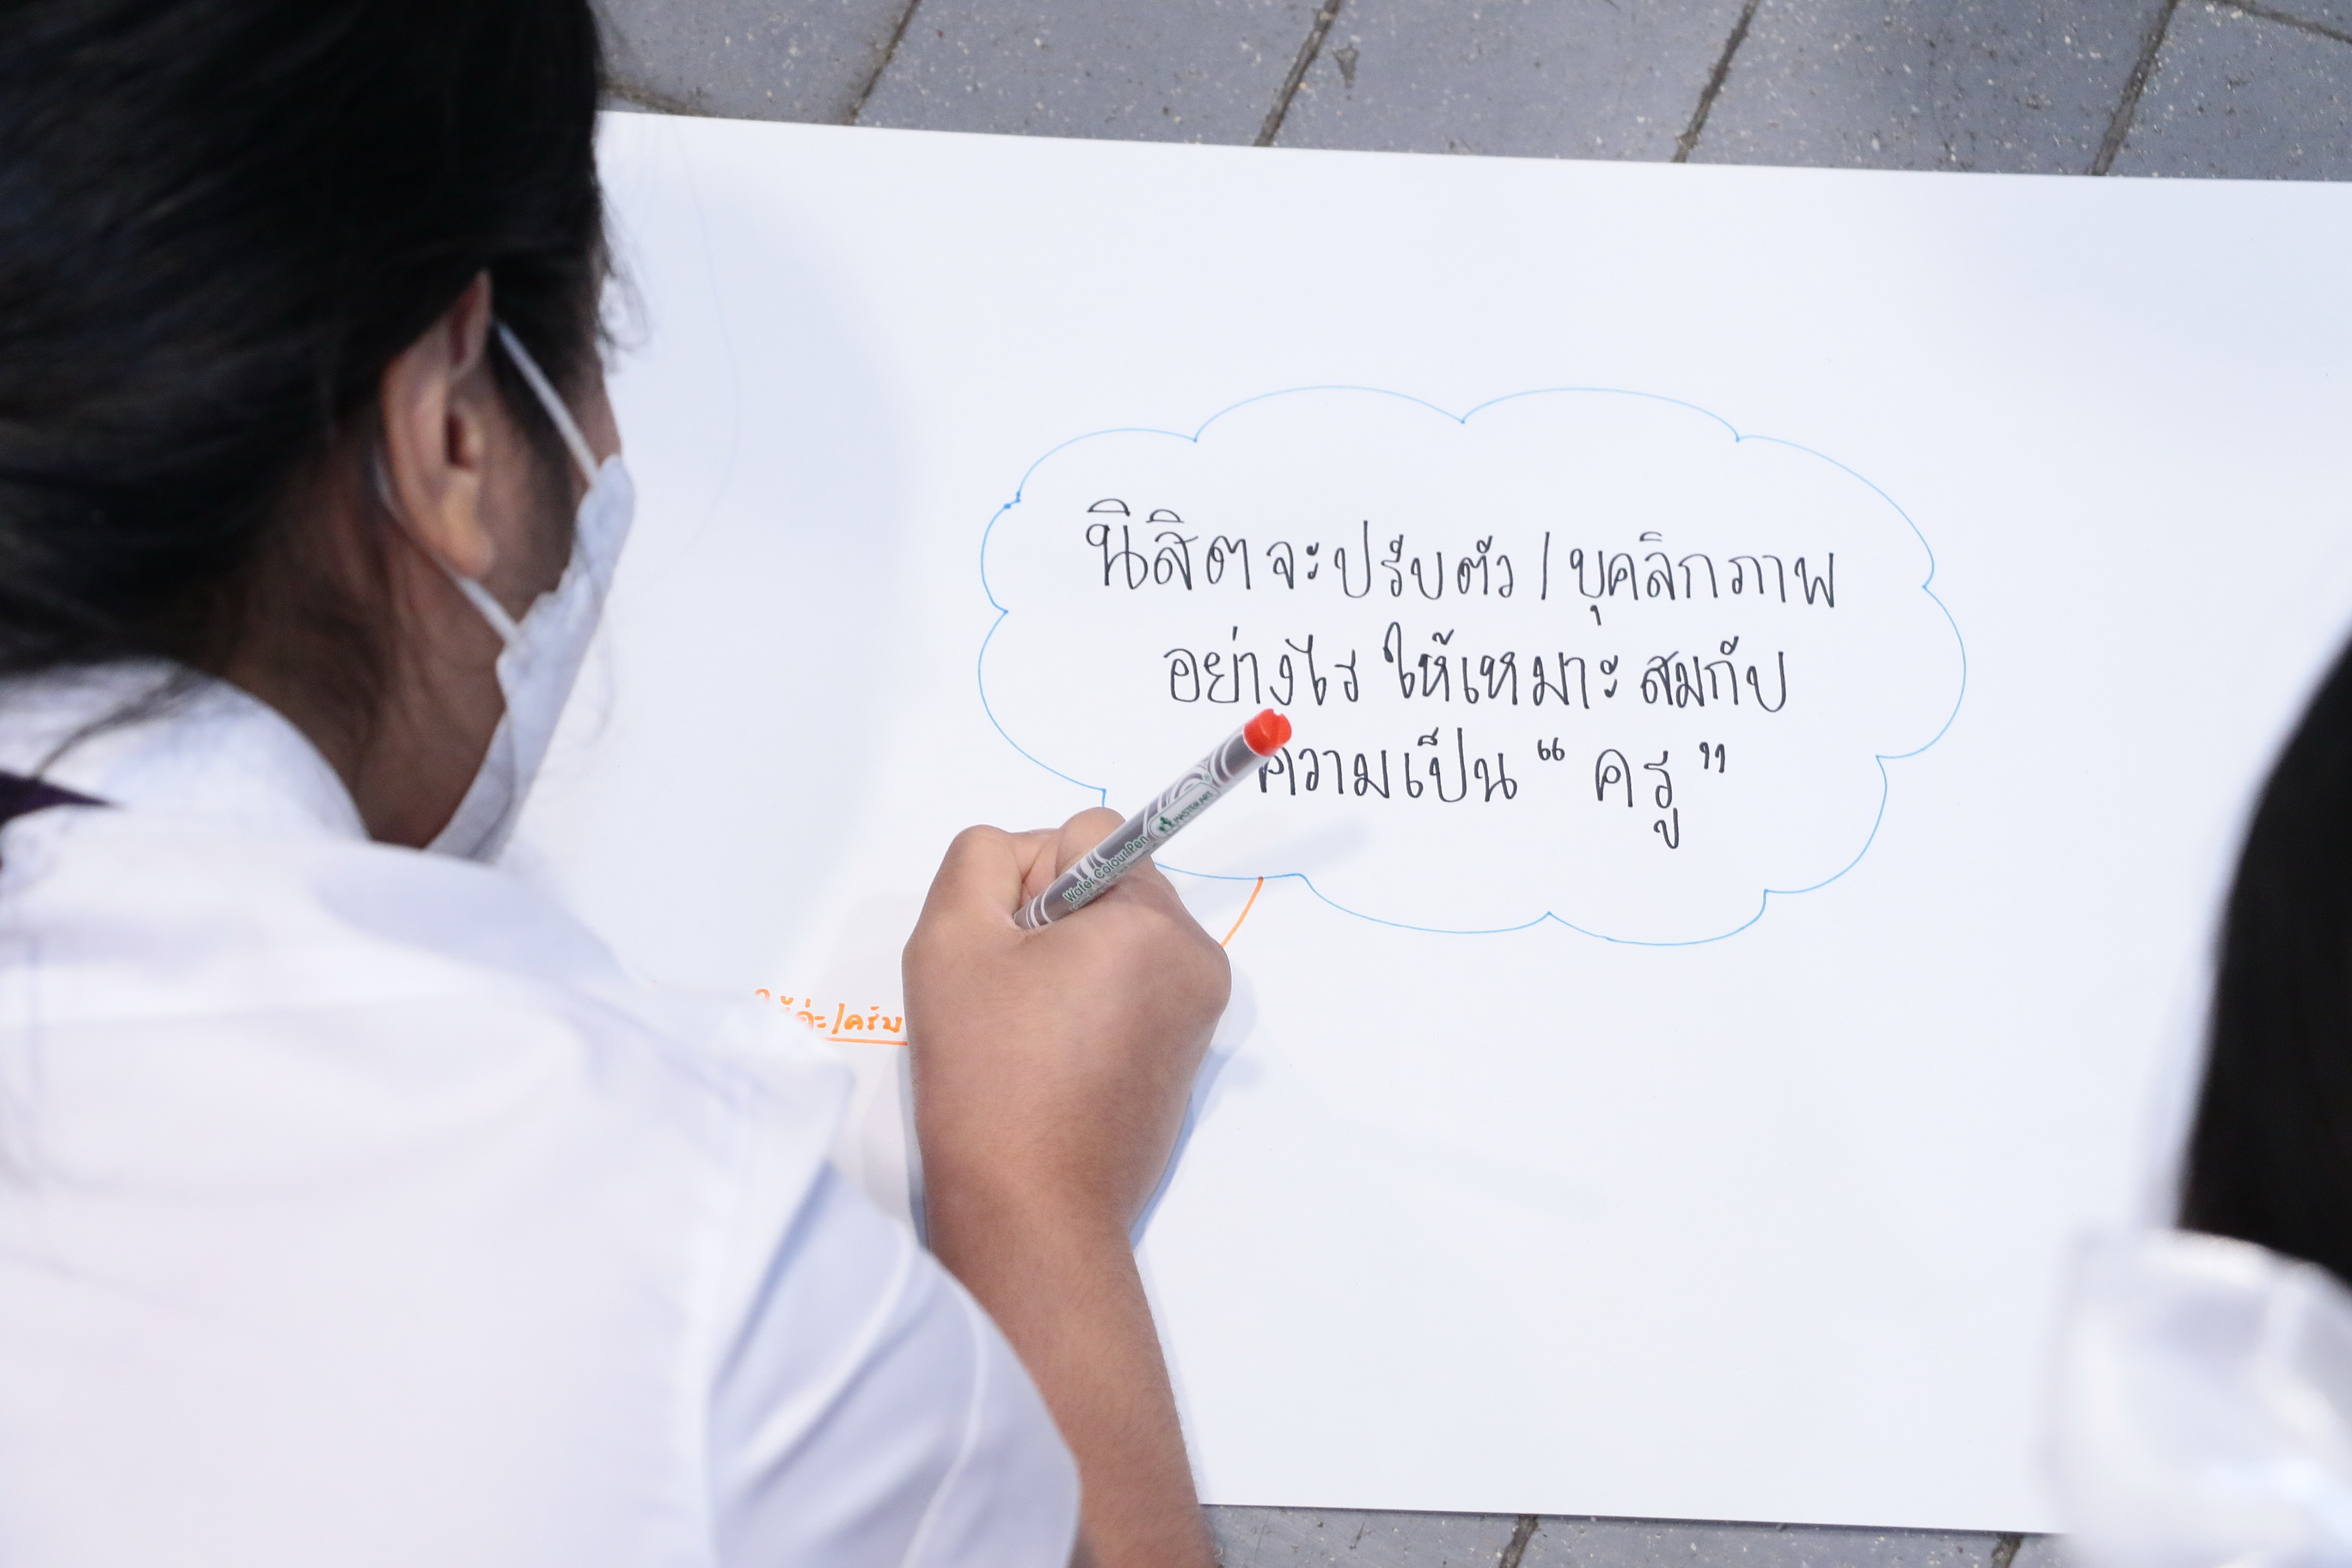 นิสิตจะปรับตัว / บุคลิกภาพ
อย่างไร ให้เหมาะสมกับ
ความเป็น “ ครู ”
MASTERART
Water Colour Pen
ค่ะ/ครับ